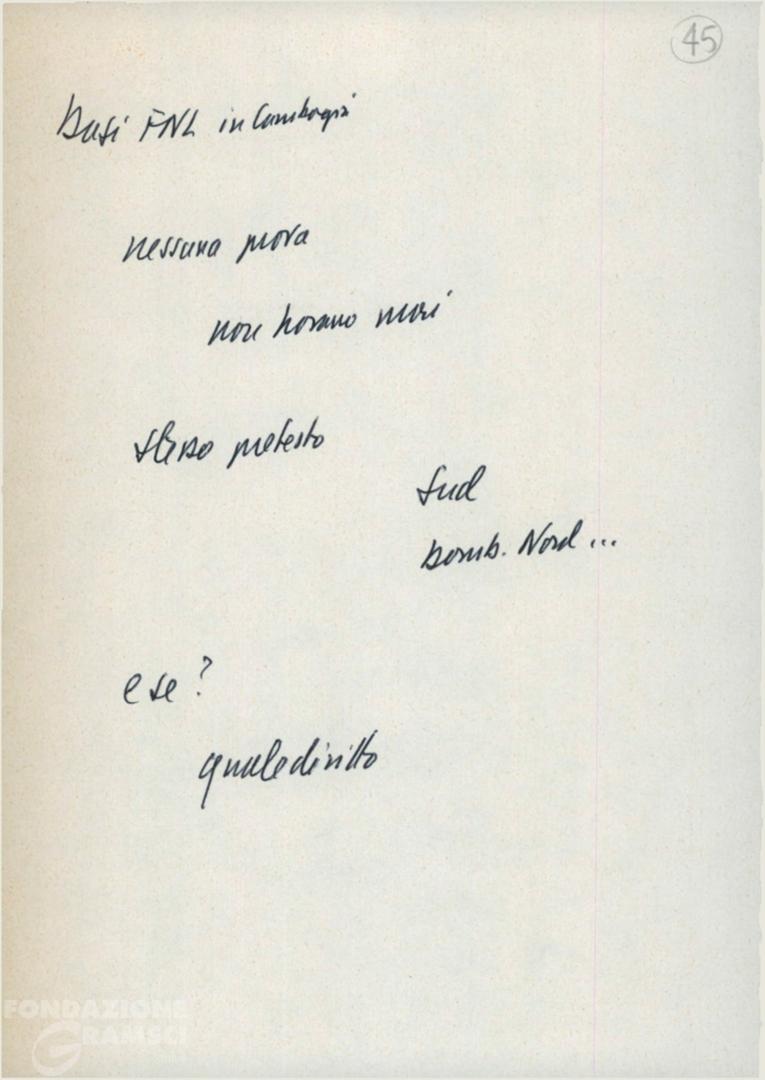 45
Basi FNL in Cambogia
nessuna prova
non trovano mai
stesso pretesto
Sud
bomb. Nord ...
e se?
quale diritto
FONDAZIONE
GRAMSCI